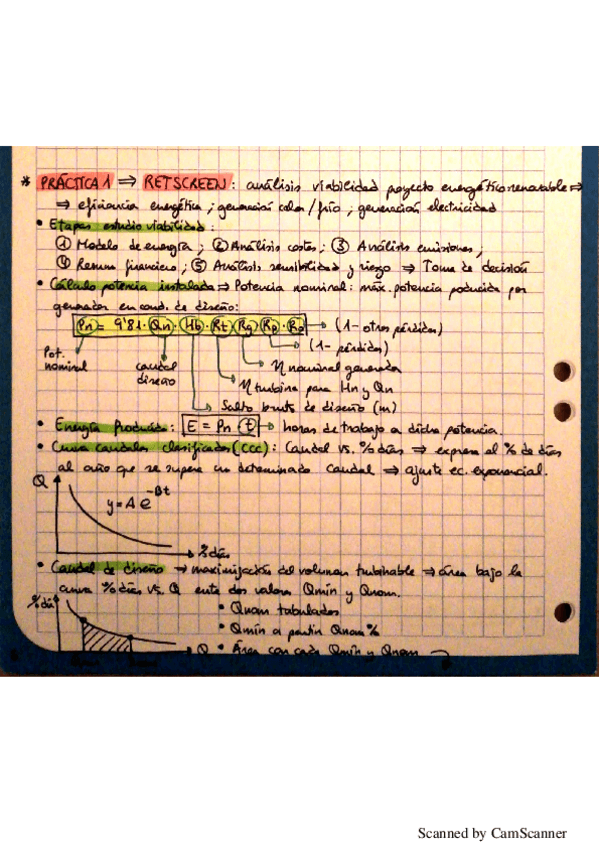 * PRÁCTICA 1 ⇒ RETSCREEN: análisis viabilidad proyecto energético renovable ⇒
⇒ eficiencia energética; generación calor/frío; generación electricidad
• Etapas estudio viabilidad:
① Modelo de energía; ② Análisis costes; ③ Análisis emisiones;
④ Resumen financiero; ⑤ Análisis sensibilidad y riesgo ⇒ Toma de decisión
• Cálculo potencia instalada ⇒ Potencia nominal: máx. potencia producida por
generador en cond. de diseño:
Pn = 9'81 · Qn · Hb · Rt · Rg · Rp · Ro → (1 - otras pérdidas)
(1 - pérdidas)
Pot. nominal
caudal diseño
η nominal generador
η turbina para Hn y Qn
Salto bruto de diseño (m)
• Energía Producida: E = Pn · t → horas de trabajo a dicha potencia.
• Curva caudales clasificados (CCC): Caudal vs. % días ⇒ expresa el % de días
al año que se supera un determinado caudal ⇒ ajuste ec. exponencial.
Q
y = A e^-Bt
% días
• Caudal de diseño ⇒ maximización del volumen turbinable ⇒ área bajo la
curva % días vs. Q entre dos valores Qmín y Qnom.
% días
• Qnom tabulados
• Qmín a partir Qnom %
Q
• Área con cada Qmín y Qnom
Scanned by CamScanner